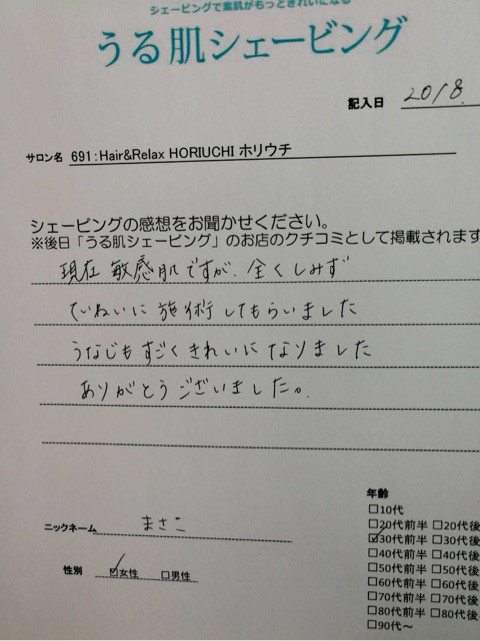 シェービングで素肌がもっときれいになる
うる肌シェービング
記入日 2018.
サロン名 691:Hair&Relax HORIUCHI ホリウチ
シェービングの感想をお聞かせください。
※後日「うる肌シェービング」のお店のクチコミとして掲載されます
現在 敏感肌ですが、全くしみず
ていねいに施術してもらいました
うなじもすごくきれいになりました
ありがとうございました。
年齢
□10代
ニックネーム まさこ
□20代前半 □20代後
☑30代前半 □30代後
□40代前半 □40代後
性別 ☑女性 □男性
□50代前半 □50代後
□60代前半 □60代後
□70代前半 □70代後
□80代前半 □80代後
□90代~